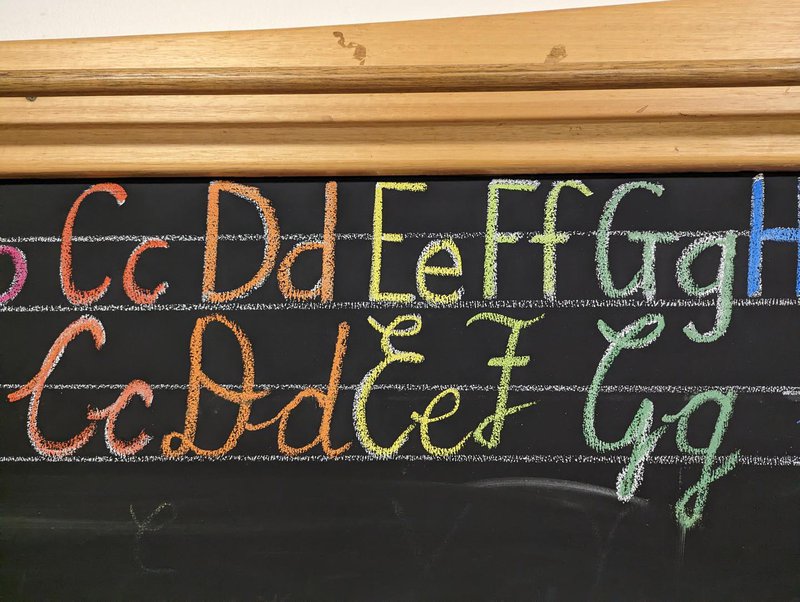 Cc Dd Ee Ff Gg H
Cc Dd Ee F Gg